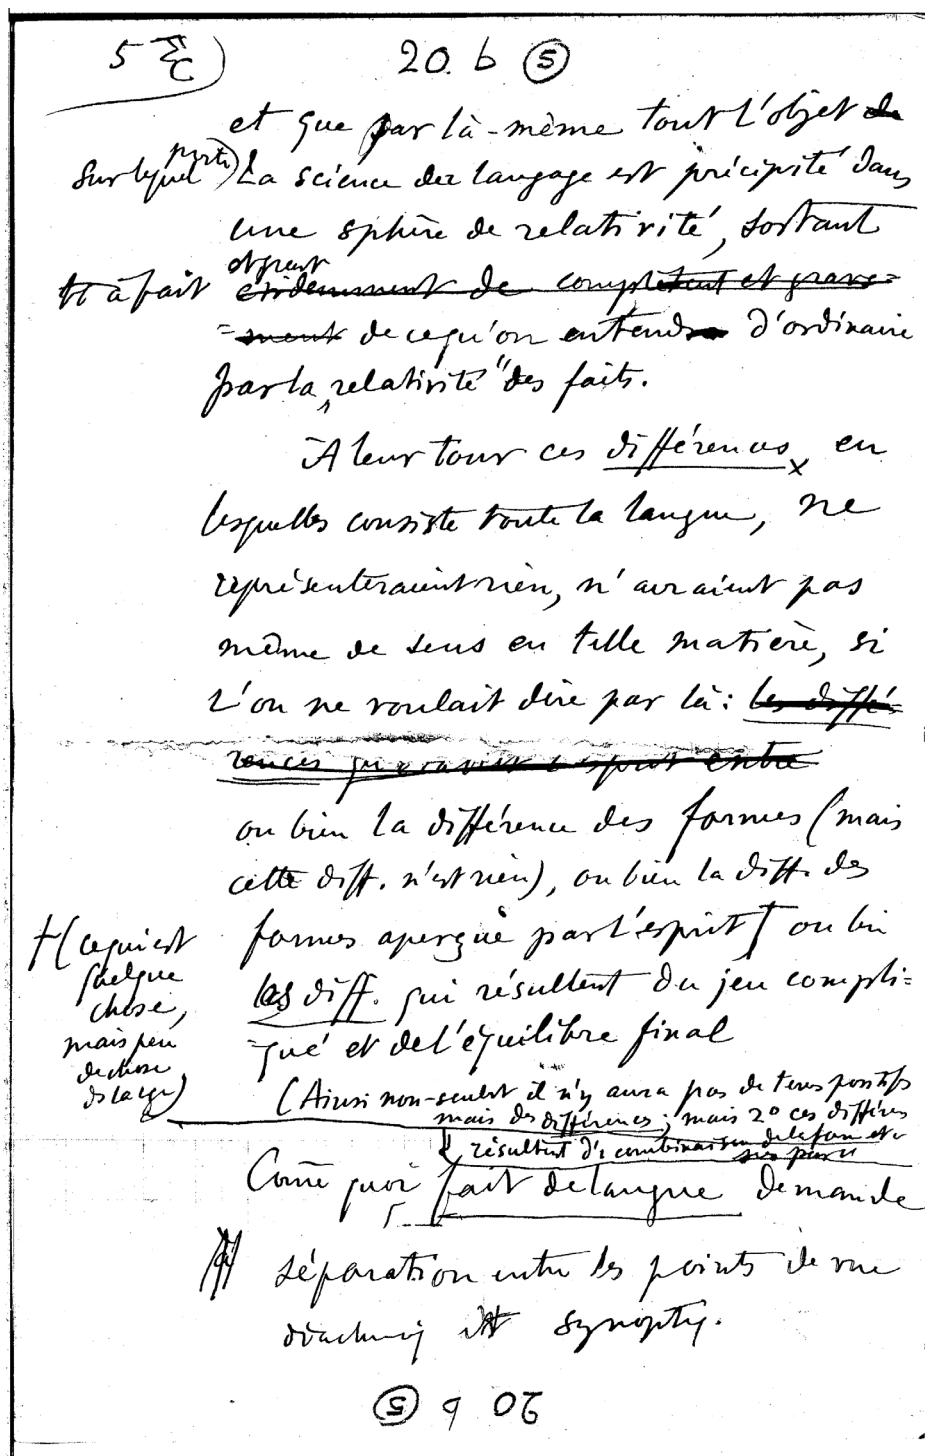 5
20. b ⑤
et que par là-même tout l'objet de
sur lequel porte
la science du langage est précipité dans
une sphère de relativité, sortant
et gravt
tt à fait évidemment de complètent et grave=
=ment de ce qu'on entend d'ordinaire
par la „relativité" des faits.
A leur tour ces différences, en
x
lesquelles consiste toute la langue, ne
représenteraient rien, n'auraient pas
même de sens en telle matière, si
l'on ne voulait dire par là: les diffé-
rences qu esprit entre
ou bien la différence des formes (mais
cette diff. n'est rien), ou bien la diff. des
formes aperçue par l'esprit † ou bien
† (ce qui est
quelque
chose,
mais peu
de chose
ds la lgue)
les diff. qui résultent du jeu compli=
qué et de l'équilibre final
(Ainsi non-seulnt il n'y aura pas de termes positifs
mais des différences; mais 2° ces différces
résultent d'1 combinaison de la forme et
Come quoi fait de langue demande
séparation entre les points de vue
diachroniq et synoptiq.
20 b ⑤